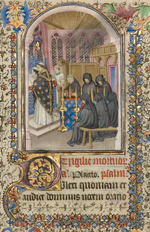 vigilie mortuor
a. Placebo. psalm.
Dilexi quoniam ex
audiet dominus vocem oratio